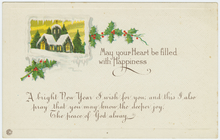 May your Heart be filled
with Happiness
A bright New Year I wish for you, and this I also
pray that you may know the deeper joy,
The peace of God alway.